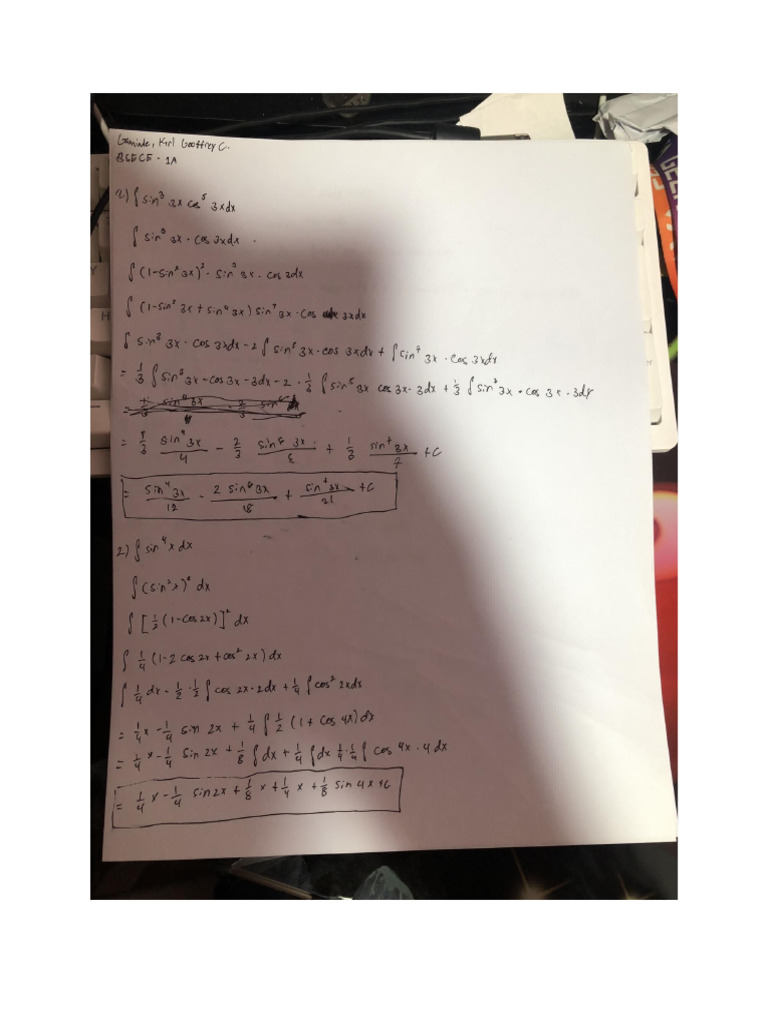 Karl Geoffrey C.
BSECE - 1A
2) ∫ sin³ 3x cos⁵ 3x dx
∫ sin³ 3x · cos 3x dx .
∫ (1-sin² 3x)² · sin³ 3x · cos 3dx
∫ (1-sin² 3x + sin⁴ 3x) sin³ 3x · cos 3x dx
∫ sin³ 3x · cos 3x dx - 2 ∫ sin⁵ 3x · cos 3x dx + ∫ sin⁷ 3x · cos 3x dx
= 1/3 ∫ sin³ 3x - cos 3x - 3dx - 2 · 1/3 ∫ sin⁵ 3x cos 3x · 3dx + 1/3 ∫ sin³ 3x · cos 3x · 3dx
= 1/3 sin⁴ 3x/4 - 2/3 sin⁶ 3x/6 + 1/3 sin⁷ 3x/7 + C
= sin⁴ 3x/12 - 2 sin⁶ 3x/18 + sin⁷ 3x/21 + C
2) ∫ sin⁴ x dx
∫ (sin² x)² dx
∫ [1/2 (1-cos 2x)]² dx
∫ 1/4 (1-2 cos 2x + cos² 2x) dx
∫ 1/4 dx - 1/2 · 1/2 ∫ cos 2x · 2dx + 1/4 ∫ cos² 2x dx
= 1/4 x - 1/4 sin 2x + 1/4 ∫ 1/2 (1 + cos 4x) dx
= 1/4 x - 1/4 sin 2x + 1/8 ∫ dx + 1/4 ∫ dx 1/4 · 1/4 ∫ cos 4x · 4 dx
= 1/4 x - 1/4 sin 2x + 1/8 x + 1/4 x + 1/8 sin 4x + C